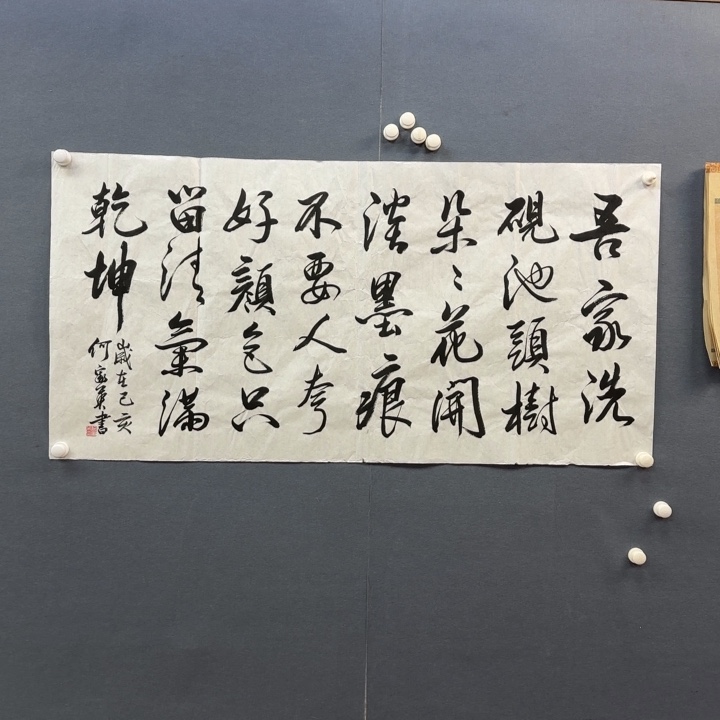 吾家洗
硯池頭樹
朵〻花開
淡墨痕
不要人夸
好顔色只
留清氣滿
乾坤
歲在己亥
何家英書